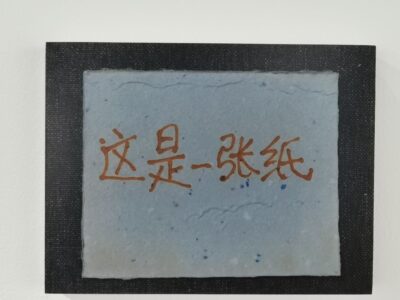 这是一张纸